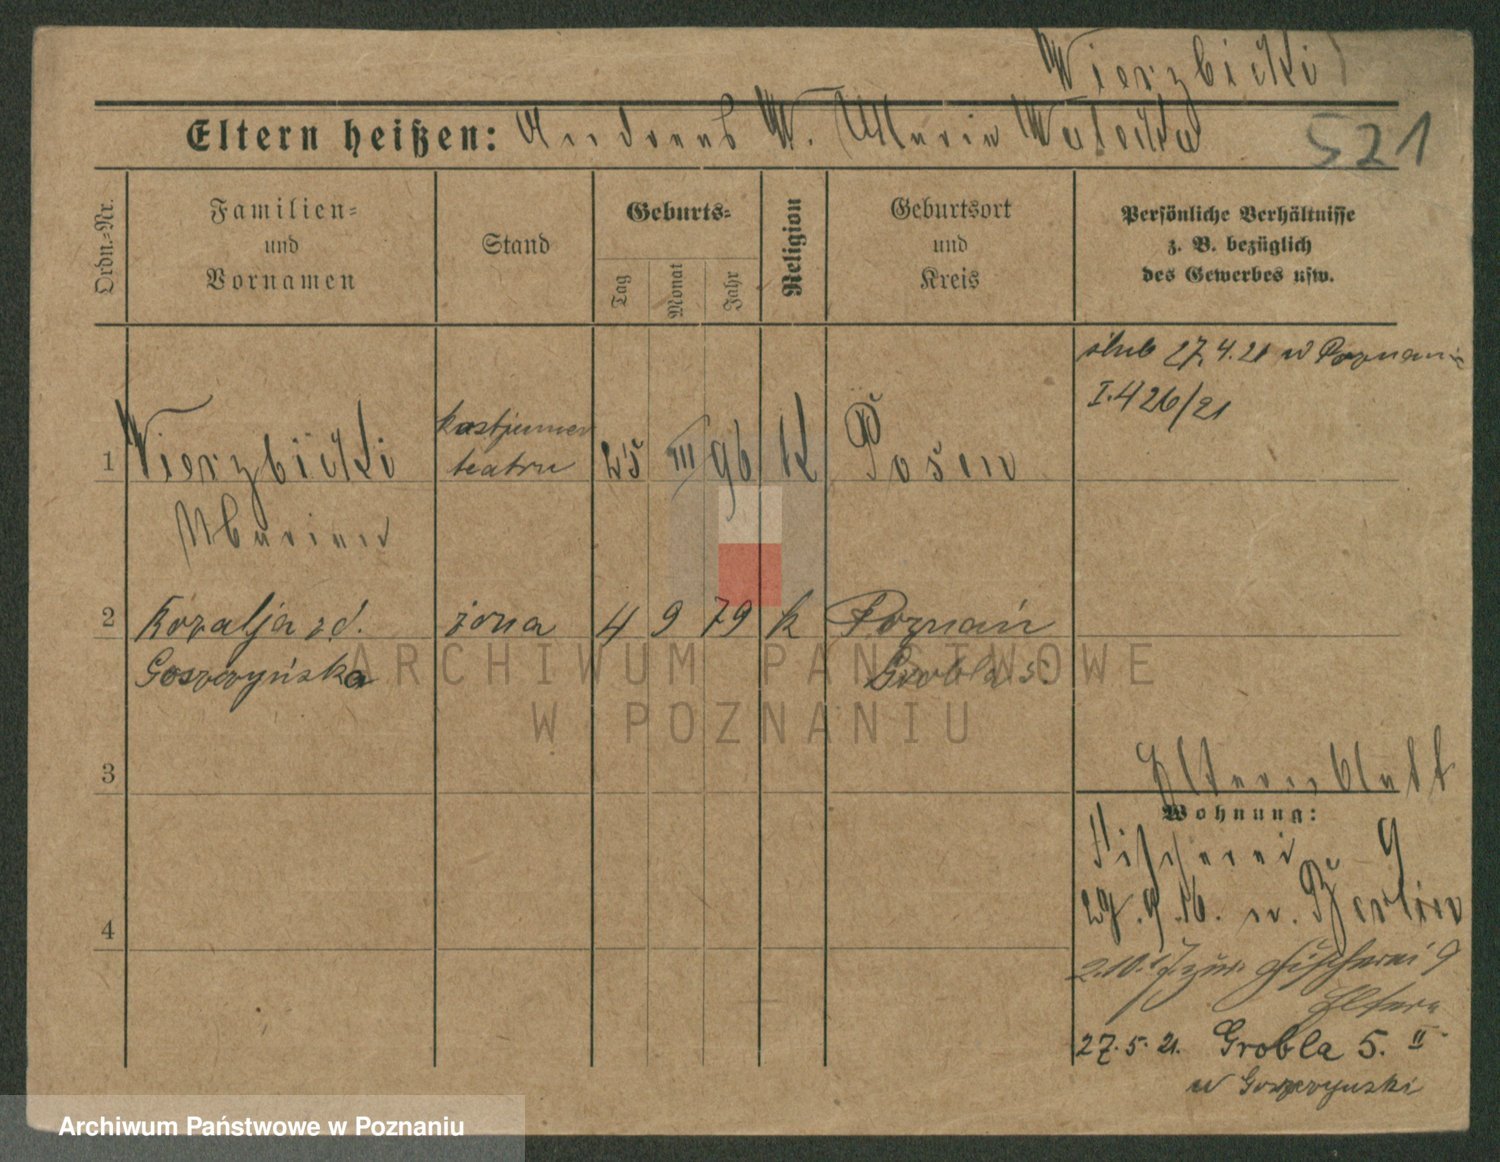 Wierzbicki
Eltern heißen: Andreas W. Maria
521
Ordn.-Nr.
Familien-
und
Vornamen
Stand
Geburts-
Tag
Monat
Jahr
Religion
Geburtsort
und
Kreis
Persönliche Verhältnisse
z. B. bezüglich
des Gewerbes usw.
ślub 27.4.21 w Poznaniu
I.426/21
1 Wierzbicki
Marian
teatru
25 III 96 K Posen
2 Rozalja zd.
Goszczyńska
żona 4 9 79 k Poznań
Grobla 5.
3
4
Elternblatt
Wohnung:
Fischerei 9
29.9.16. n. Berlin
2.10.17 zur. Fischerei 9
Eltern
27.5.21. Grobla 5. II
w Goszczyński
ARCHIWUM PAŃSTWOWE
W POZNANIU
Archiwum Państwowe w Poznaniu